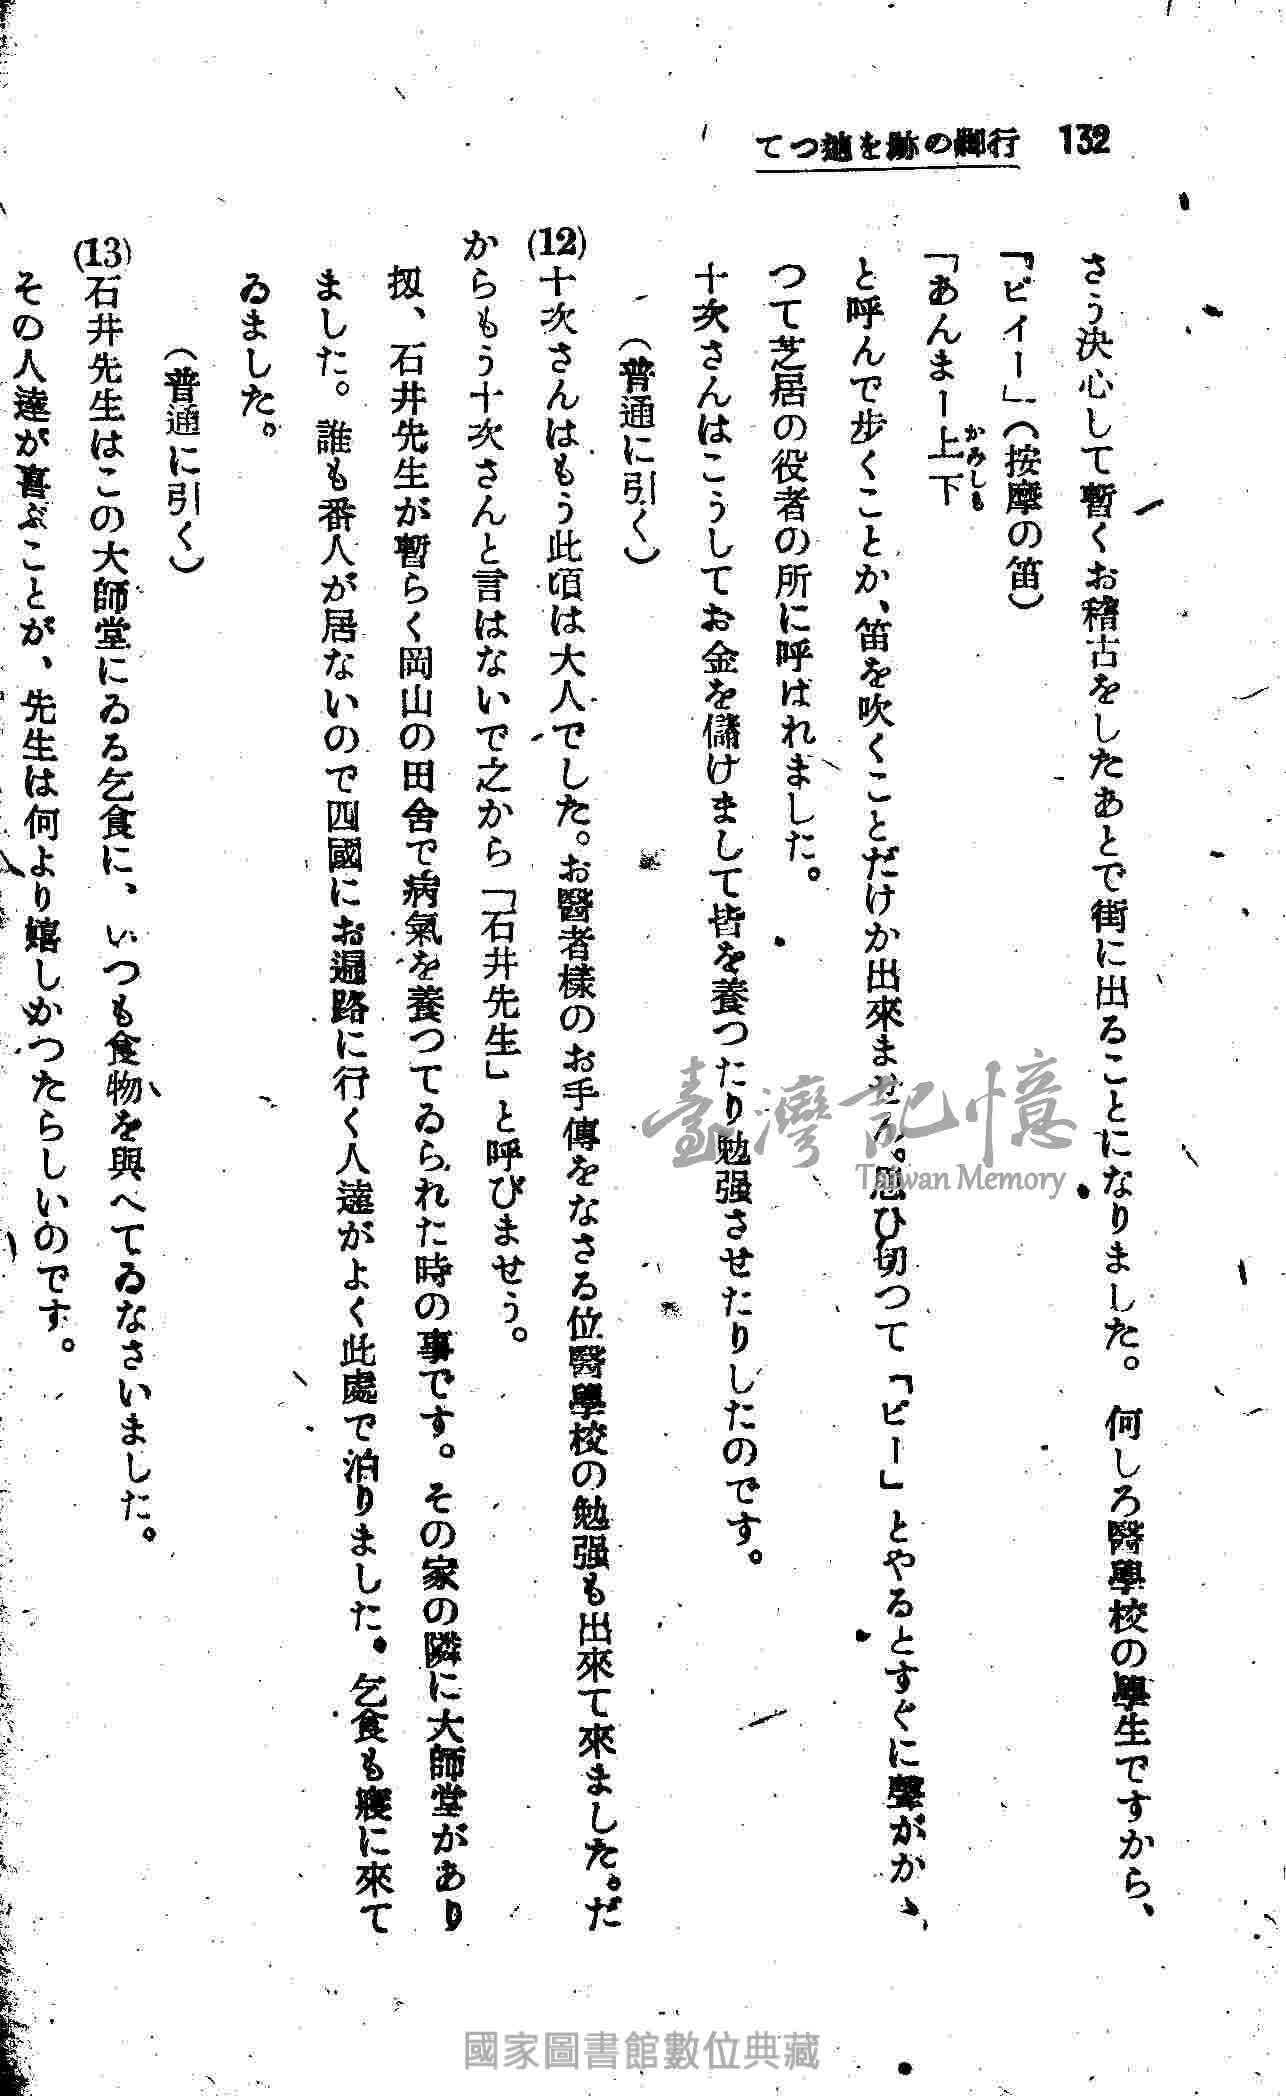 132 行脚の跡を辿つて
さう決心して暫くお稽古をしたあとで街に出ることになりました。何しろ醫學校の學生ですから、
「ピイー」(按摩の笛)
「あんまー上下
かみしも
と呼んで步くことか、笛を吹くことだけか出來ません。思ひ切つて「ピー」とやるとすぐに聲がかゝ
つて芝居の役者の所に呼ばれました。
十次さんはこうしてお金を儲けまして皆を養つたり勉强させたりしたのです。
(普通に引く)
(12)十次さんはもう此頃は大人でした。お醫者樣のお手傳をなさる位醫學校の勉强も出來て來ました。だ
からもう十次さんと言はないで之から「石井先生」と呼びませう。
扨、石井先生が暫らく岡山の田舍で病氣を養つてゐられた時の事です。その家の隣に大師堂があり
ました。誰も番人が居ないので四國にお遍路に行く人達がよく此處で泊りました。乞食も寢に來て
ゐました。
(普通に引く)
(13)石井先生はこの大師堂にゐる乞食に、いつも食物を與へてゐなさいました。
その人達が喜ぶことが、先生は何より嬉しかつたらしいのです。
臺灣記憶
Taiwan Memory
國家圖書館數位典藏